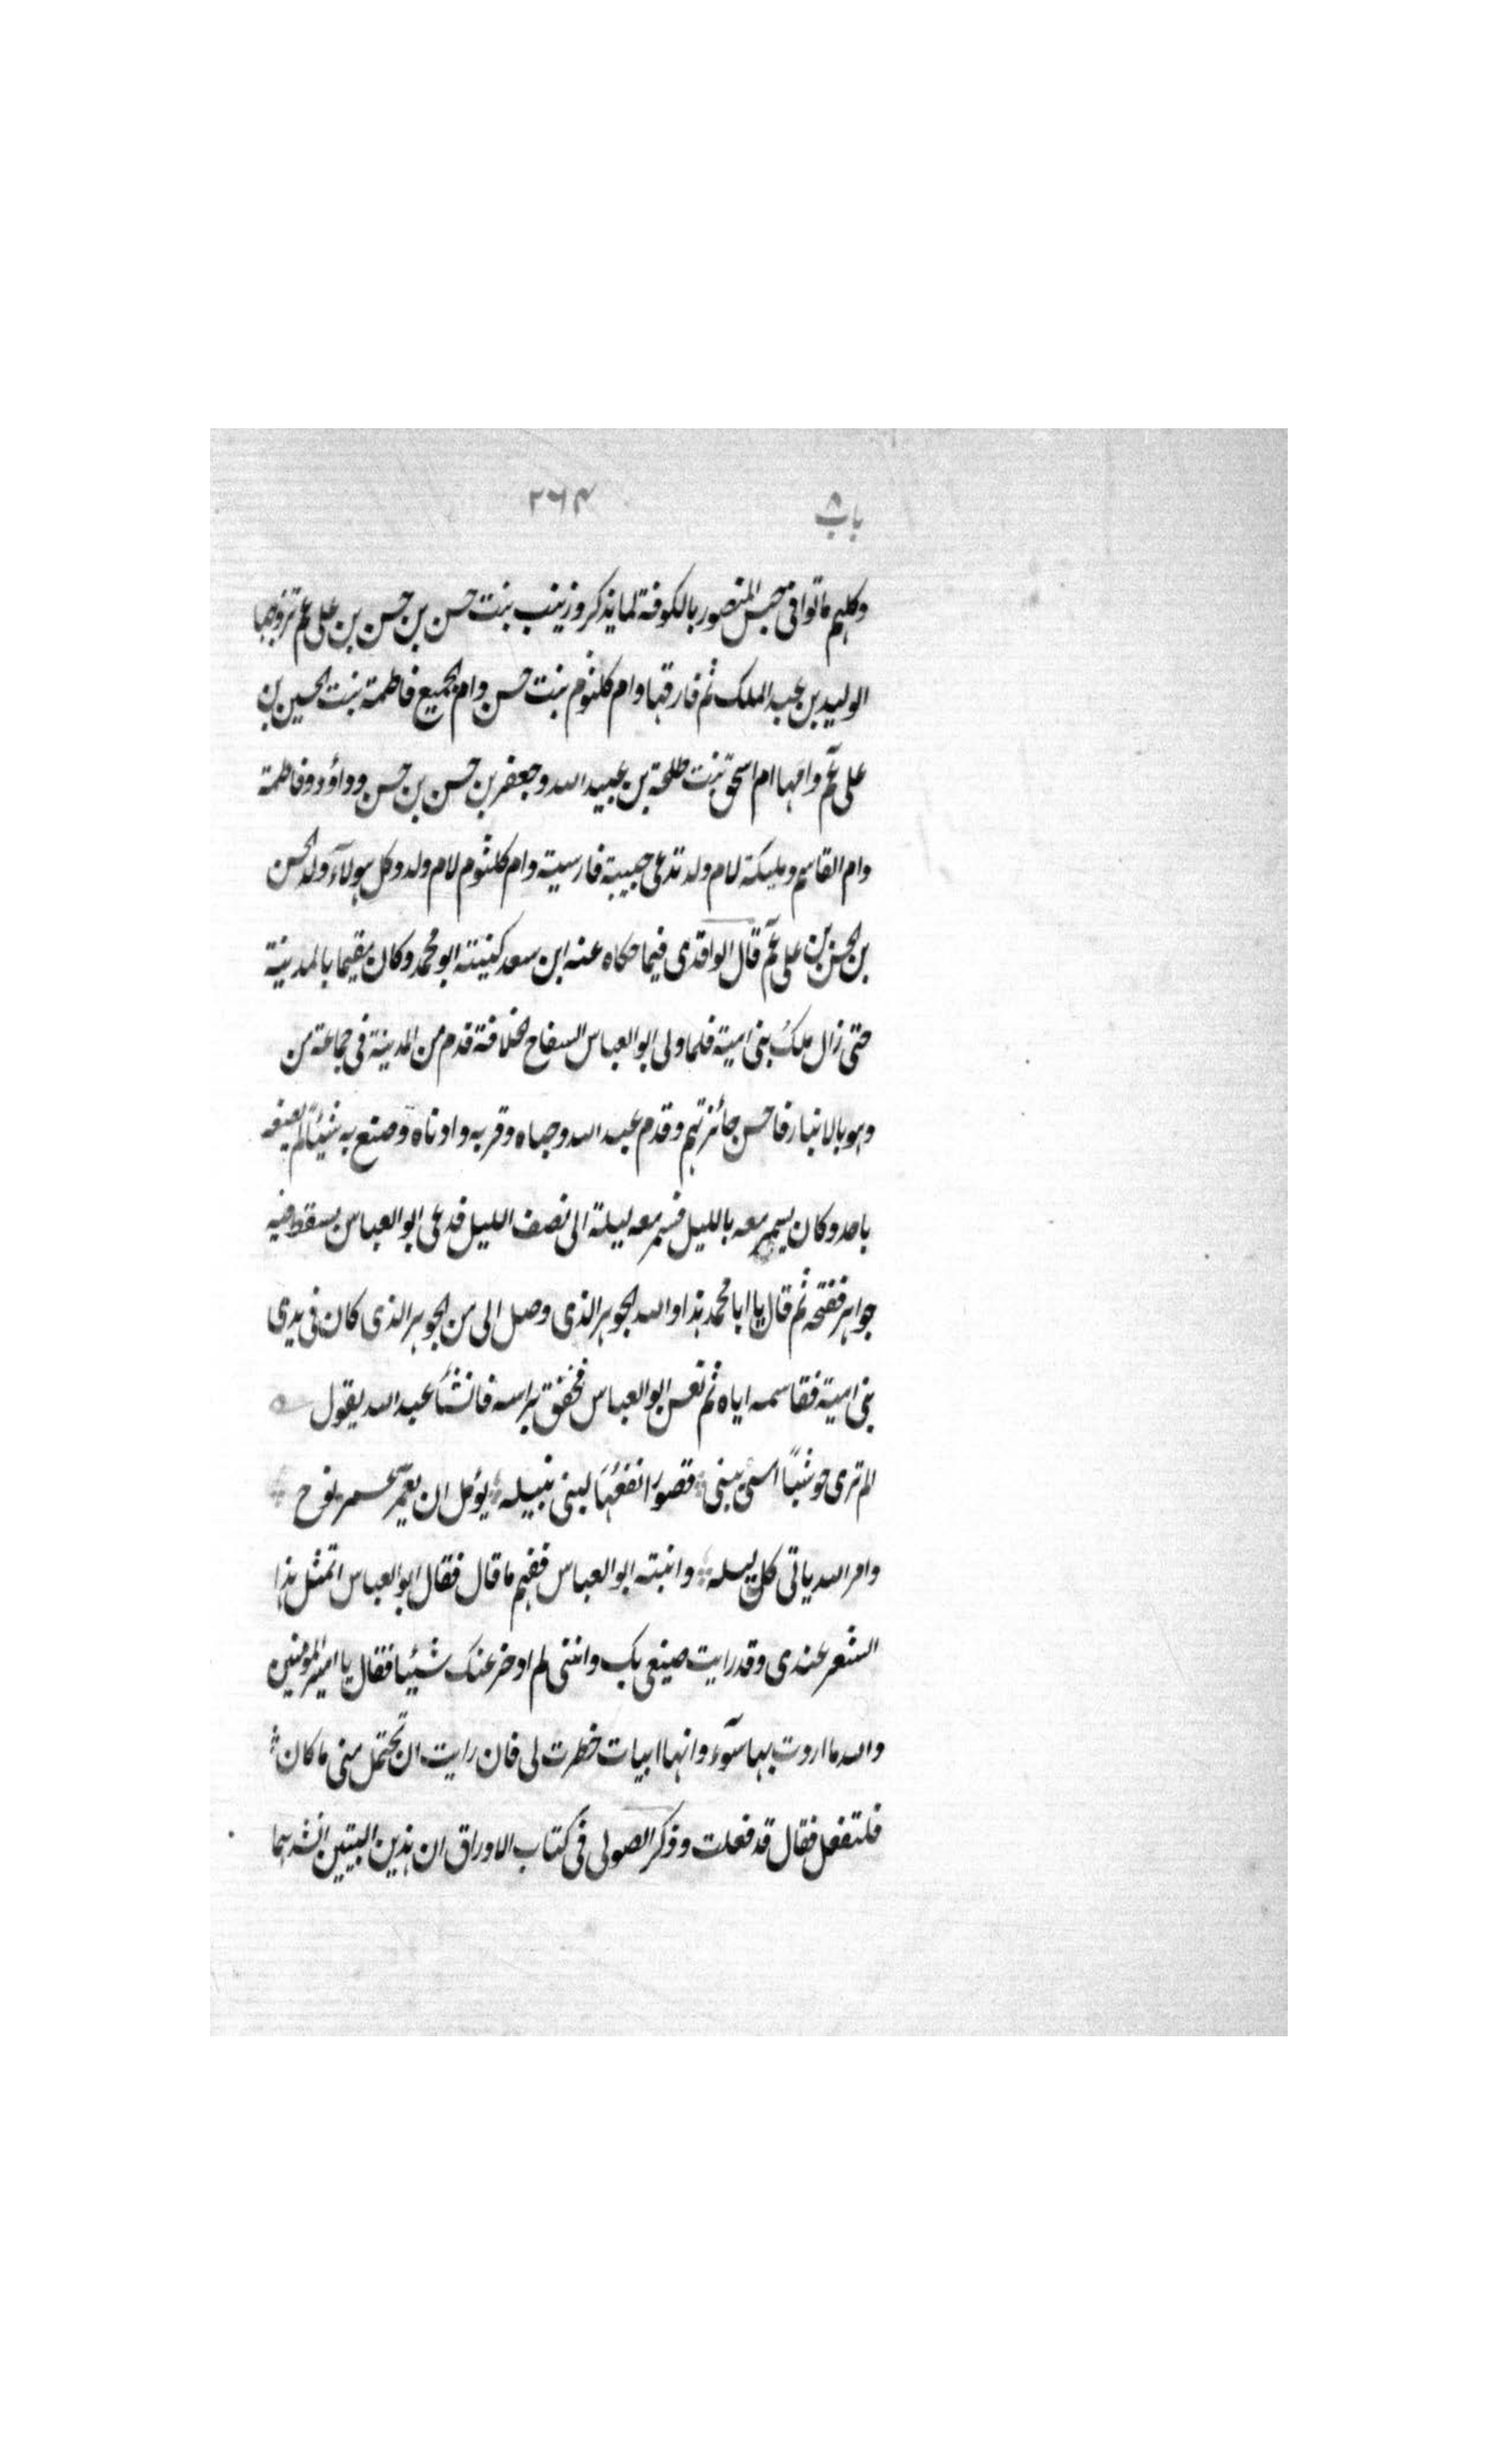 باب ٨ ٢٦٤
وكلهم ماتوا فى حبس المنصور بالكوفة لما يذكر وزينب بنت حسن بن حسن بن على عم تزوجها
الوليد بن عبد الملك ثم فارقها وام كلثوم بنت حسن وام الجميع فاطمة بنت الحسين بن
على عم وامها ام اسحق بنت طلحة بن عبيد الله وجعفر بن حسن بن حسن وداؤود وفاطمة
وام القاسم ومليكة لام ولد تدعى حبيبة فارسية وام كلثوم لام ولد وكل هولآء ولد الحسن
بن الحسن بن على عم قال الواقدى فيما حكاه عنه ابن سعد كنيته ابو محمد وكان مقيما بالمدينة
حتى زال ملك بنى امية فلما ولى ابو العباس السفاح الخلافة قدم من المدينة فى جماعة من
وهو بالانبار فاحسن جائزتهم وقدم عبد الله وحباه وقربه وادناه وصنع به شيئا لم يصنعه
باحد وكان يسمر معه بالليل فسمر معه ليلة الى نصف الليل فدعى ابو العباس بسقط فيه
جواهر ففتحه ثم قال يا ابا محمد هذا والله الجوهر الذى وصل الى من الجوهر الذى كان فى يدى
بنى امية فقاسمه اياه ثم نعس ابو العباس فخفق براسه فانشأ عبد الله يقول
الم ترى حوشبًا امسى يبنى قصورا نفعُها لبنى نبيله يؤمل ان يعمّر عمر نوح
وامر الله ياتى كل ليله وانتبه ابو العباس ففهم ما قال فقال ابو العباس اتمثل هذا
الشعر عندى وقد رايت صنيعى بك واننى لم ادخر عنك شيئا فقال يا امير المؤمنين
والله ما اردت بها سوٓء وانها ابيات خطرت لى فان رايت ان تحتمل منى ما كان
فلتفعل فقال قد فعلت وذكر الصولى فى كتاب الاوراق ان هذين البيتين انشدهما